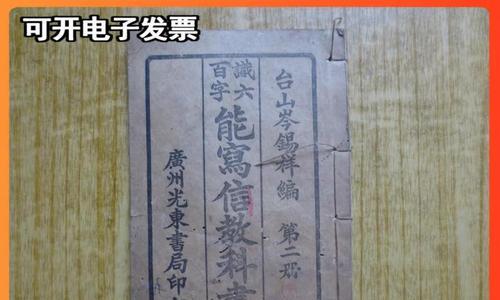 可开电子发票
台山岑錫祥編 第二冊
識六百字
能寫信教科書
廣州光東書局印